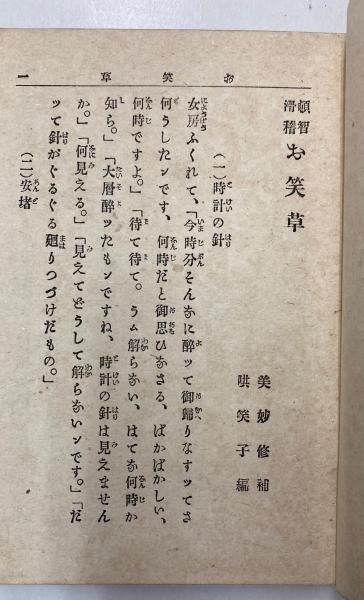 お笑草 一
頓智
滑稽
お笑草
美妙修補
哄笑子編
(一)時計の針
女房ふくれて、「今時分そんなに醉ッて御歸りなすッてさ
何うしたンです、何時だと御思ひなさる、ばかばかしい、
何時ですよ。」「待て待て。うム解らない、はてな何時か
知ら。」「大層醉ッたもンですね、時計の針は見えません
か。」「何見える。」「見えてどうして解らないンです。」「だ
ッて針がぐるぐる廻りつづけだもの。」
(二)安堵